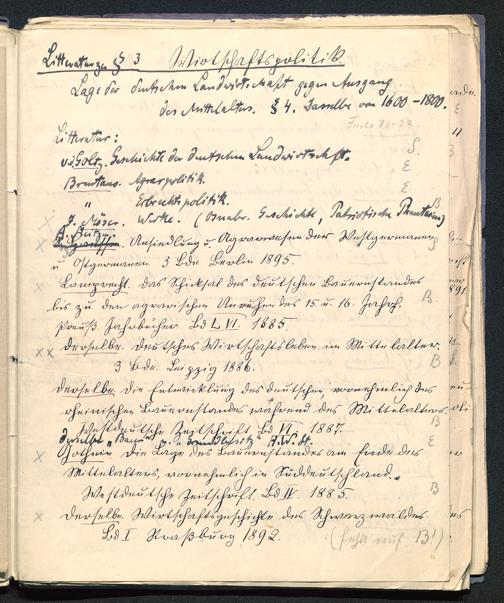 Litteratur zu § 3 Wirtschaftspolitik.
Lage der deutschen Landwirtschaft gegen Ausgang
des Mittelalters. § 4. Dasselbe von 1600–1800.
Litteratur:
v.d. Goltz. Geschichte der deutschen Landwirtschaft. S.
Brentano. Agrarpolitik. E
" Erbrechtspolitik. B
J. Möser. Werke. (Osnabr. Geschichte, Patriotische Phantasien)
Ansiedlung u. Agrarwesen der Westgermanen
u. Ostgermanen. 3 Bde. Berlin 1895.
Lamprecht. das Schicksal des deutschen Bauernstandes
bis zu den agrarischen Unruhen des 15 u. 16. Jahrh. B
Preuß. Jahrbücher Bd LVI. 1885.
xx derselbe. deutsches Wirtschaftsleben im Mittelalter.
3 Bde. Leipzig 1886. B
derselbe. Die Entwicklung des deutschen vornehmlich des
rheinischen Bauernstandes während des Mittelalters.
Westdeutsche Zeitschrift Bd VI. 1887. B
derselbe "Bauer" H.W.St. E
x Gothein die Lage des Bauernstandes am Ende des
Mittelalters, vornehmlich in Süddeutschland.
Westdeutsche Zeitschrift. Bd IV. 1885. B
x derselbe. Wirtschaftsgeschichte des Schwarzwaldes
Bd I Straßburg 1892. (fehlt auf B!)